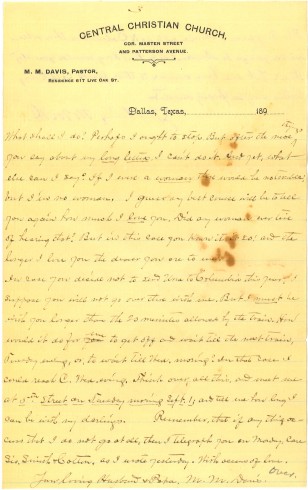 CENTRAL CHRISTIAN CHURCH,
COR. MASTEN STREET
AND PATTERSON AVENUE.
M. M. DAVIS, PASTOR,
RESIDENCE 617 LIVE OAK ST.
Dallas, Texas, 189
What shall I do? Perhaps I ought to stop. But after the nice
you say about my long letters I can't do it. And yet, what
else can I say? If I were a woman this would be natural
but I'm no woman. I guess my best course will be to tell
you again how much I love you. Did any woman ever tire
of hearing that? But in this case you know it is so: and the
longer I love you the dearer you are to me.
In case you decide not to send June to Columbia this year, I
suppose you will not go over there with me. But I must be
with you longer than the 20 minutes allowed by the train. How
would it do for me to get off and wait till the next train,
Tuesday evening, or, to what till Wed. morning? In that case I
could reach C. Wed. evening. Think over all this, and meet me
at 9th Street on Tuesday morning Sept. 1, and tell me how long I
can be with my darlings. Remember, that if any thing oc-
curs that I do not go at all, then I telegraph you on Monday, Care
Sis, Smith & Cotton, as I wrote yesterday. With oceans of love.
Your loving Husband & Papa, M. M. Davis.
Over.